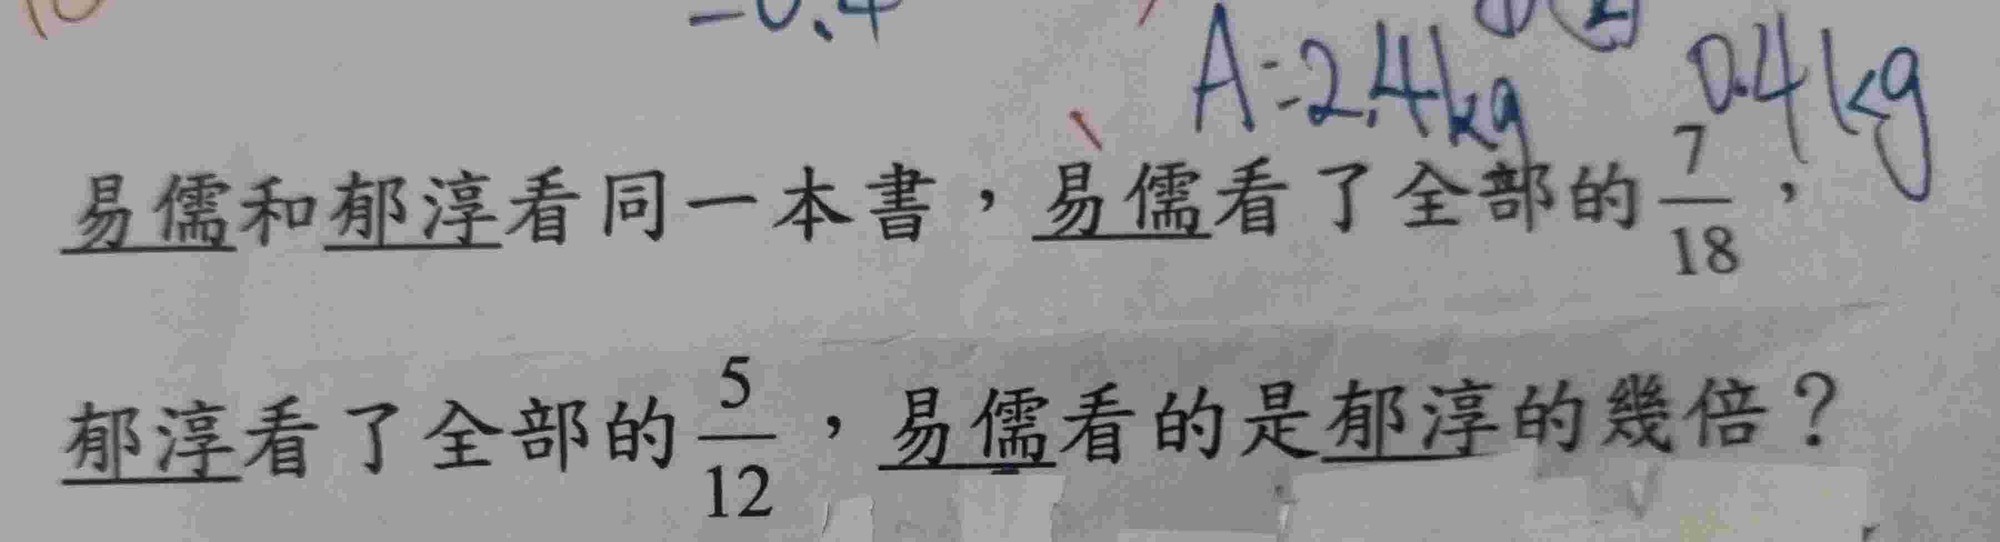 -0.4
A=2.4kg 0.4kg
易儒和郁淳看同一本書，易儒看了全部的7/18，
郁淳看了全部的5/12，易儒看的是郁淳的幾倍？